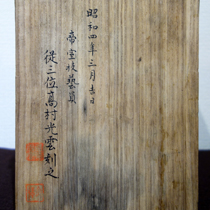 昭和四年三月吉日
帝室技藝員
従三位高村光雲刻之